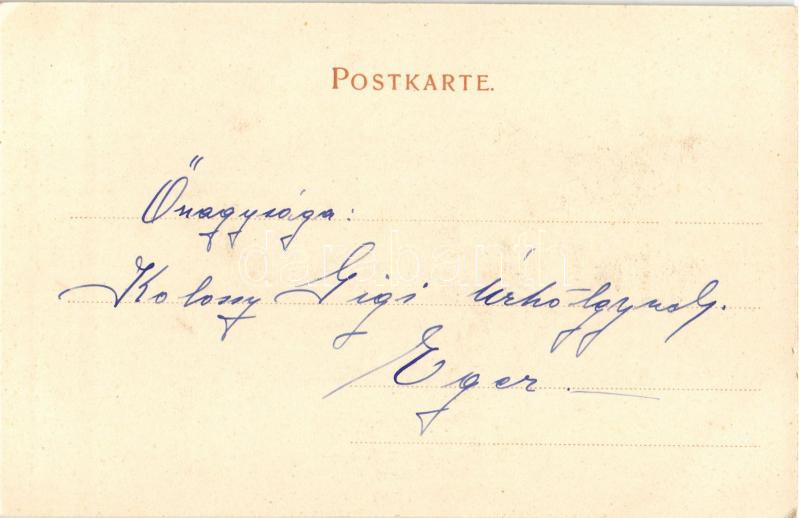 POSTKARTE.
Őnagysága:
Kolossy Gigi Úrhölgynek.
Eger.
darabanth